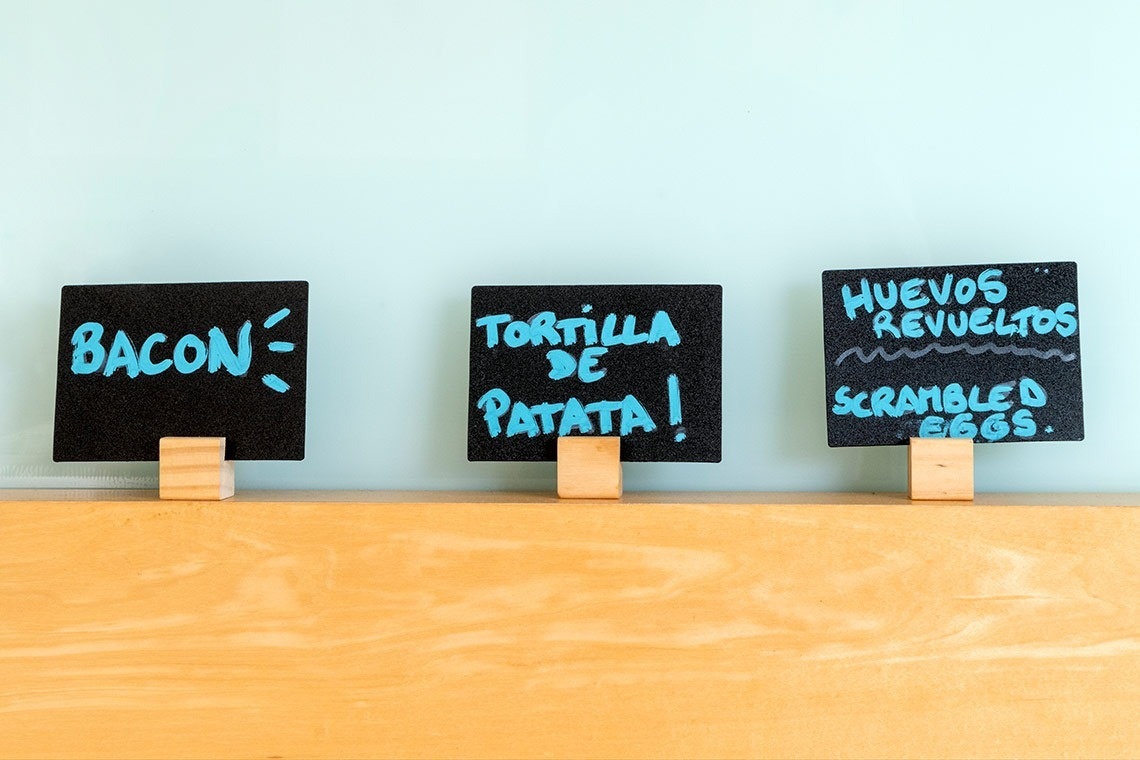 BACON
TORTILLA
DE
PATATA!
HUEVOS
REVUELTOS
SCRAMBLED
EGGS.